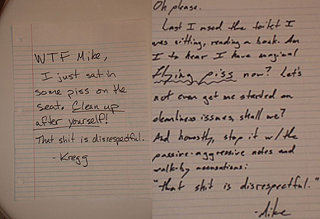 WTF Mike,
I just sat in
some piss on the
seat. Clean up
after yourself!
That shit is disrespectful.
- Kregg
Oh please.
Last I used the toilet I
was sitting, reading a book. Am
I to hear I have magical
flying piss now? Let's
not even get me started on
cleanliness issues, shall we?
And honestly, stop it w/ the
passive-aggressive notes and
walk-by accusations:
"that shit is disrespectful."
- Mike